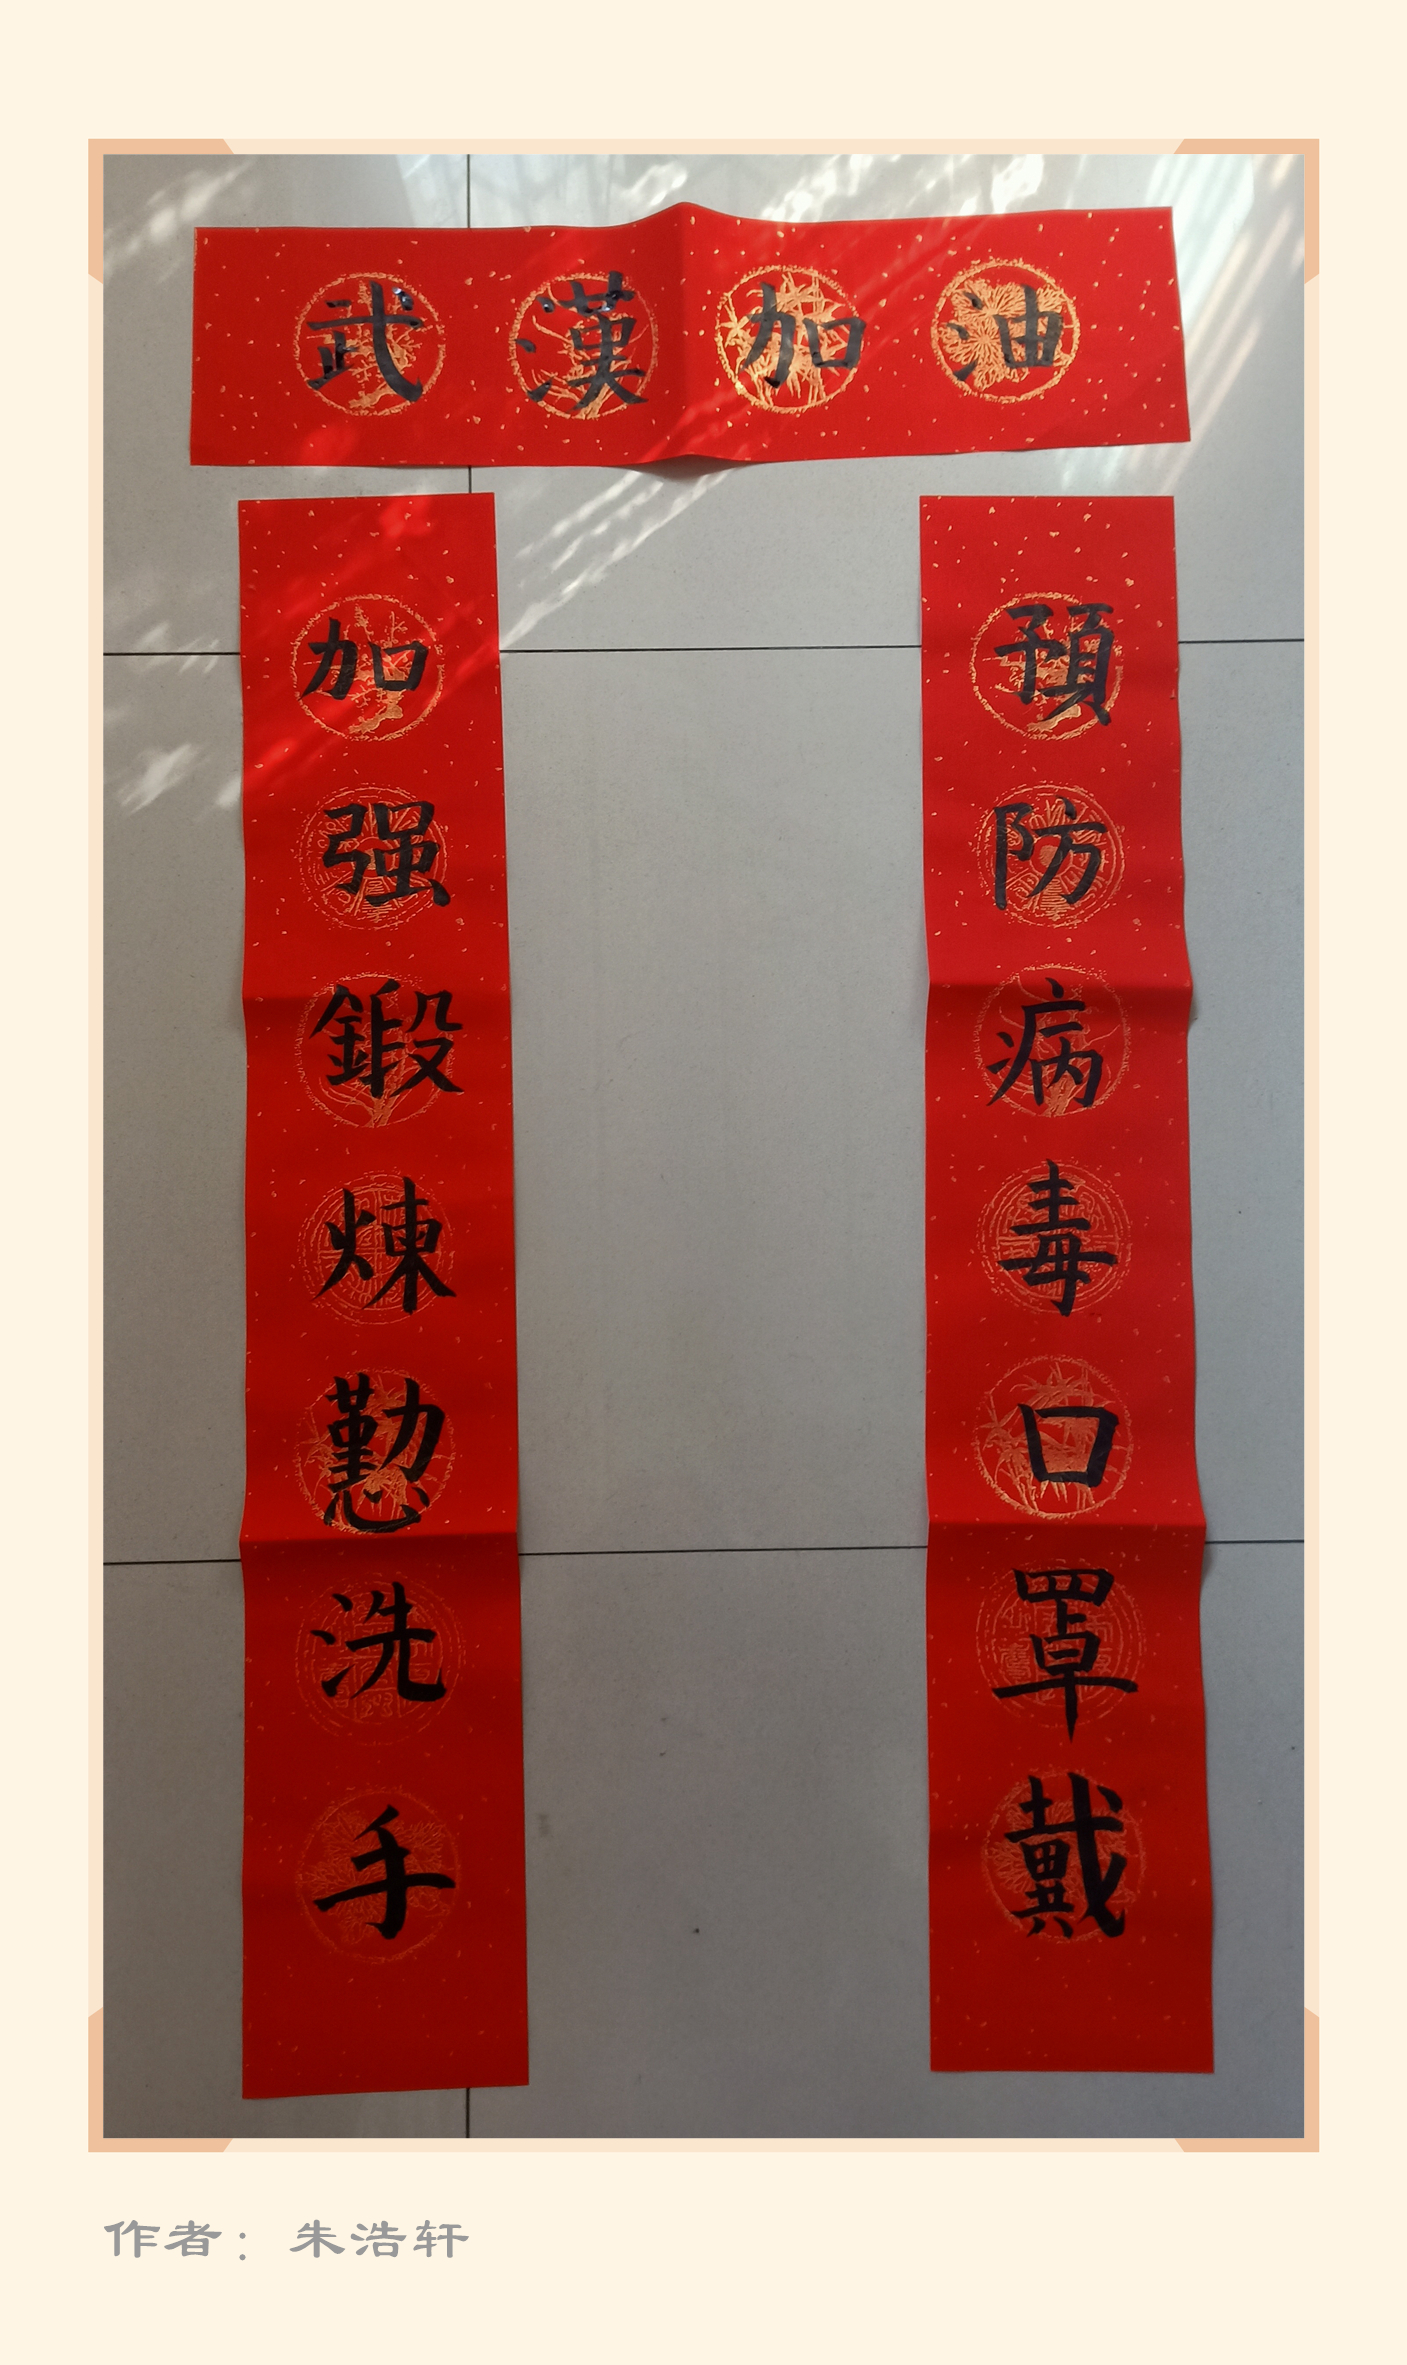 武漢加油
預防病毒口罩戴
加强鍛煉懃洗手
作者：朱浩轩